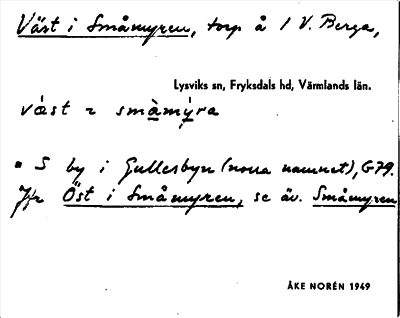 Väst i Småmyren, torp å 1 V. Berga,
Lysviks sn, Fryksdals hd, Värmlands län.
S by i Gullesbyn (norra namnet), G79.
Jfr Öst i Småmyren, se äv. Småmyren
ÅKE NORÉN 1949